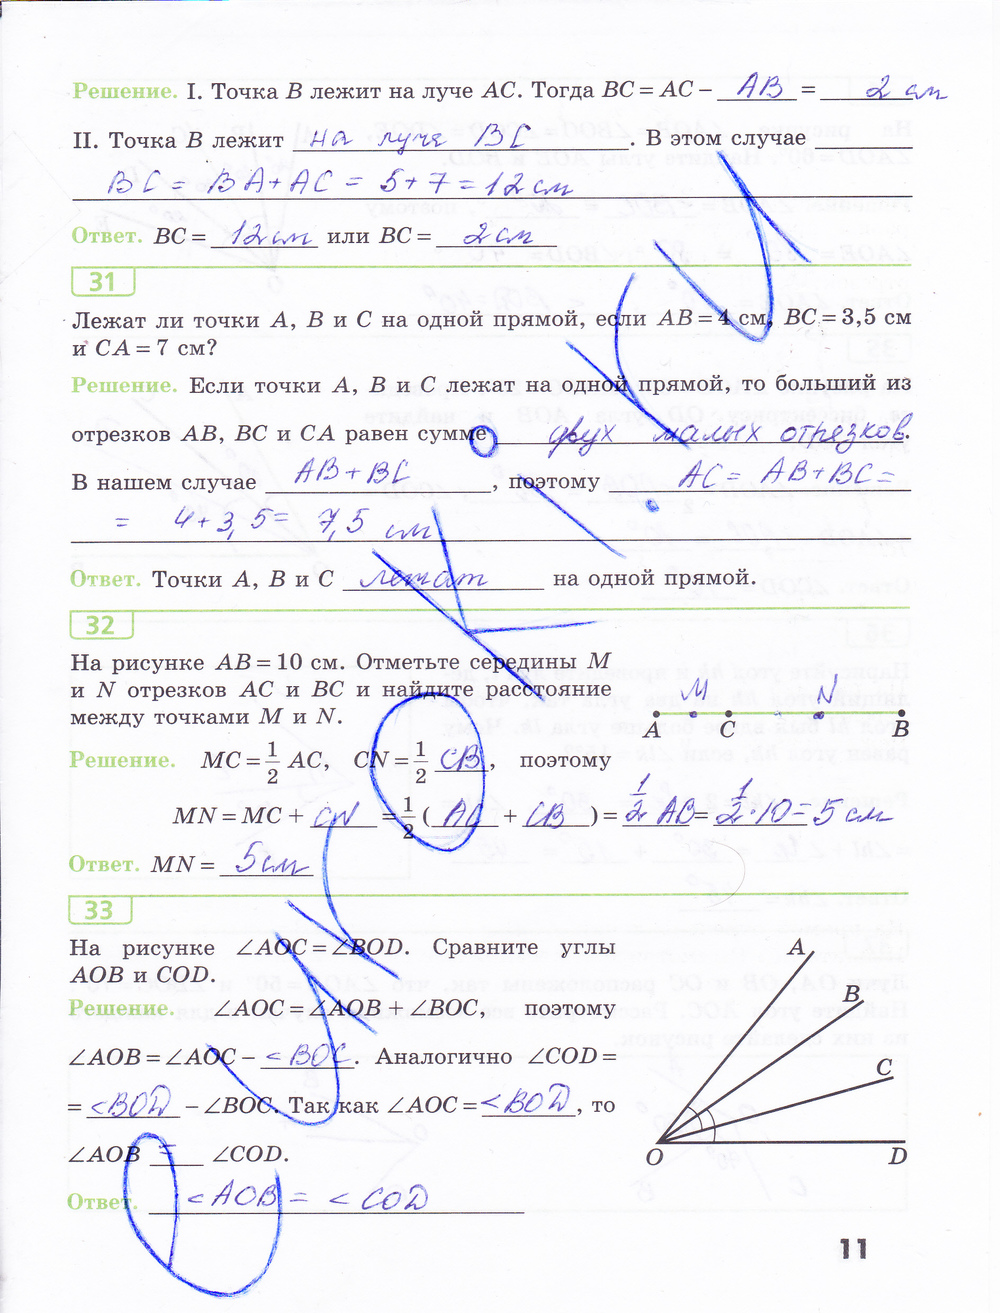 Решение. I. Точка B лежит на луче AC. Тогда BC = AC – AB = 2 см
II. Точка B лежит на луче BC. В этом случае
BC = BA + AC = 5 + 7 = 12 см
Ответ. BC = 12 см или BC = 2 см
31
Лежат ли точки A, B и C на одной прямой, если AB = 4 см, BC = 3,5 см
и CA = 7 см?
Решение. Если точки A, B и C лежат на одной прямой, то больший из
отрезков AB, BC и CA равен сумме двух малых отрезков.
В нашем случае AB + BC, поэтому AC = AB + BC =
= 4 + 3,5 = 7,5 см
Ответ. Точки A, B и C лежат на одной прямой.
32
На рисунке AB = 10 см. Отметьте середины M
и N отрезков AC и BC и найдите расстояние
между точками M и N.
M N
A C B
Решение. MC = 1/2 AC, CN = 1/2 CB, поэтому
MN = MC + CN = 1/2 (AC + CB) = 1/2 AB = 1/2 · 10 = 5 см
Ответ. MN = 5 см
33
На рисунке ∠AOC = ∠BOD. Сравните углы
AOB и COD.
Решение. ∠AOC = ∠AOB + ∠BOC, поэтому
∠AOB = ∠AOC – <BOC. Аналогично ∠COD =
= <BOD – ∠BOC. Так как ∠AOC = <BOD, то
∠AOB = ∠COD.
Ответ. <AOB = <COD
A
B
C
O D
11